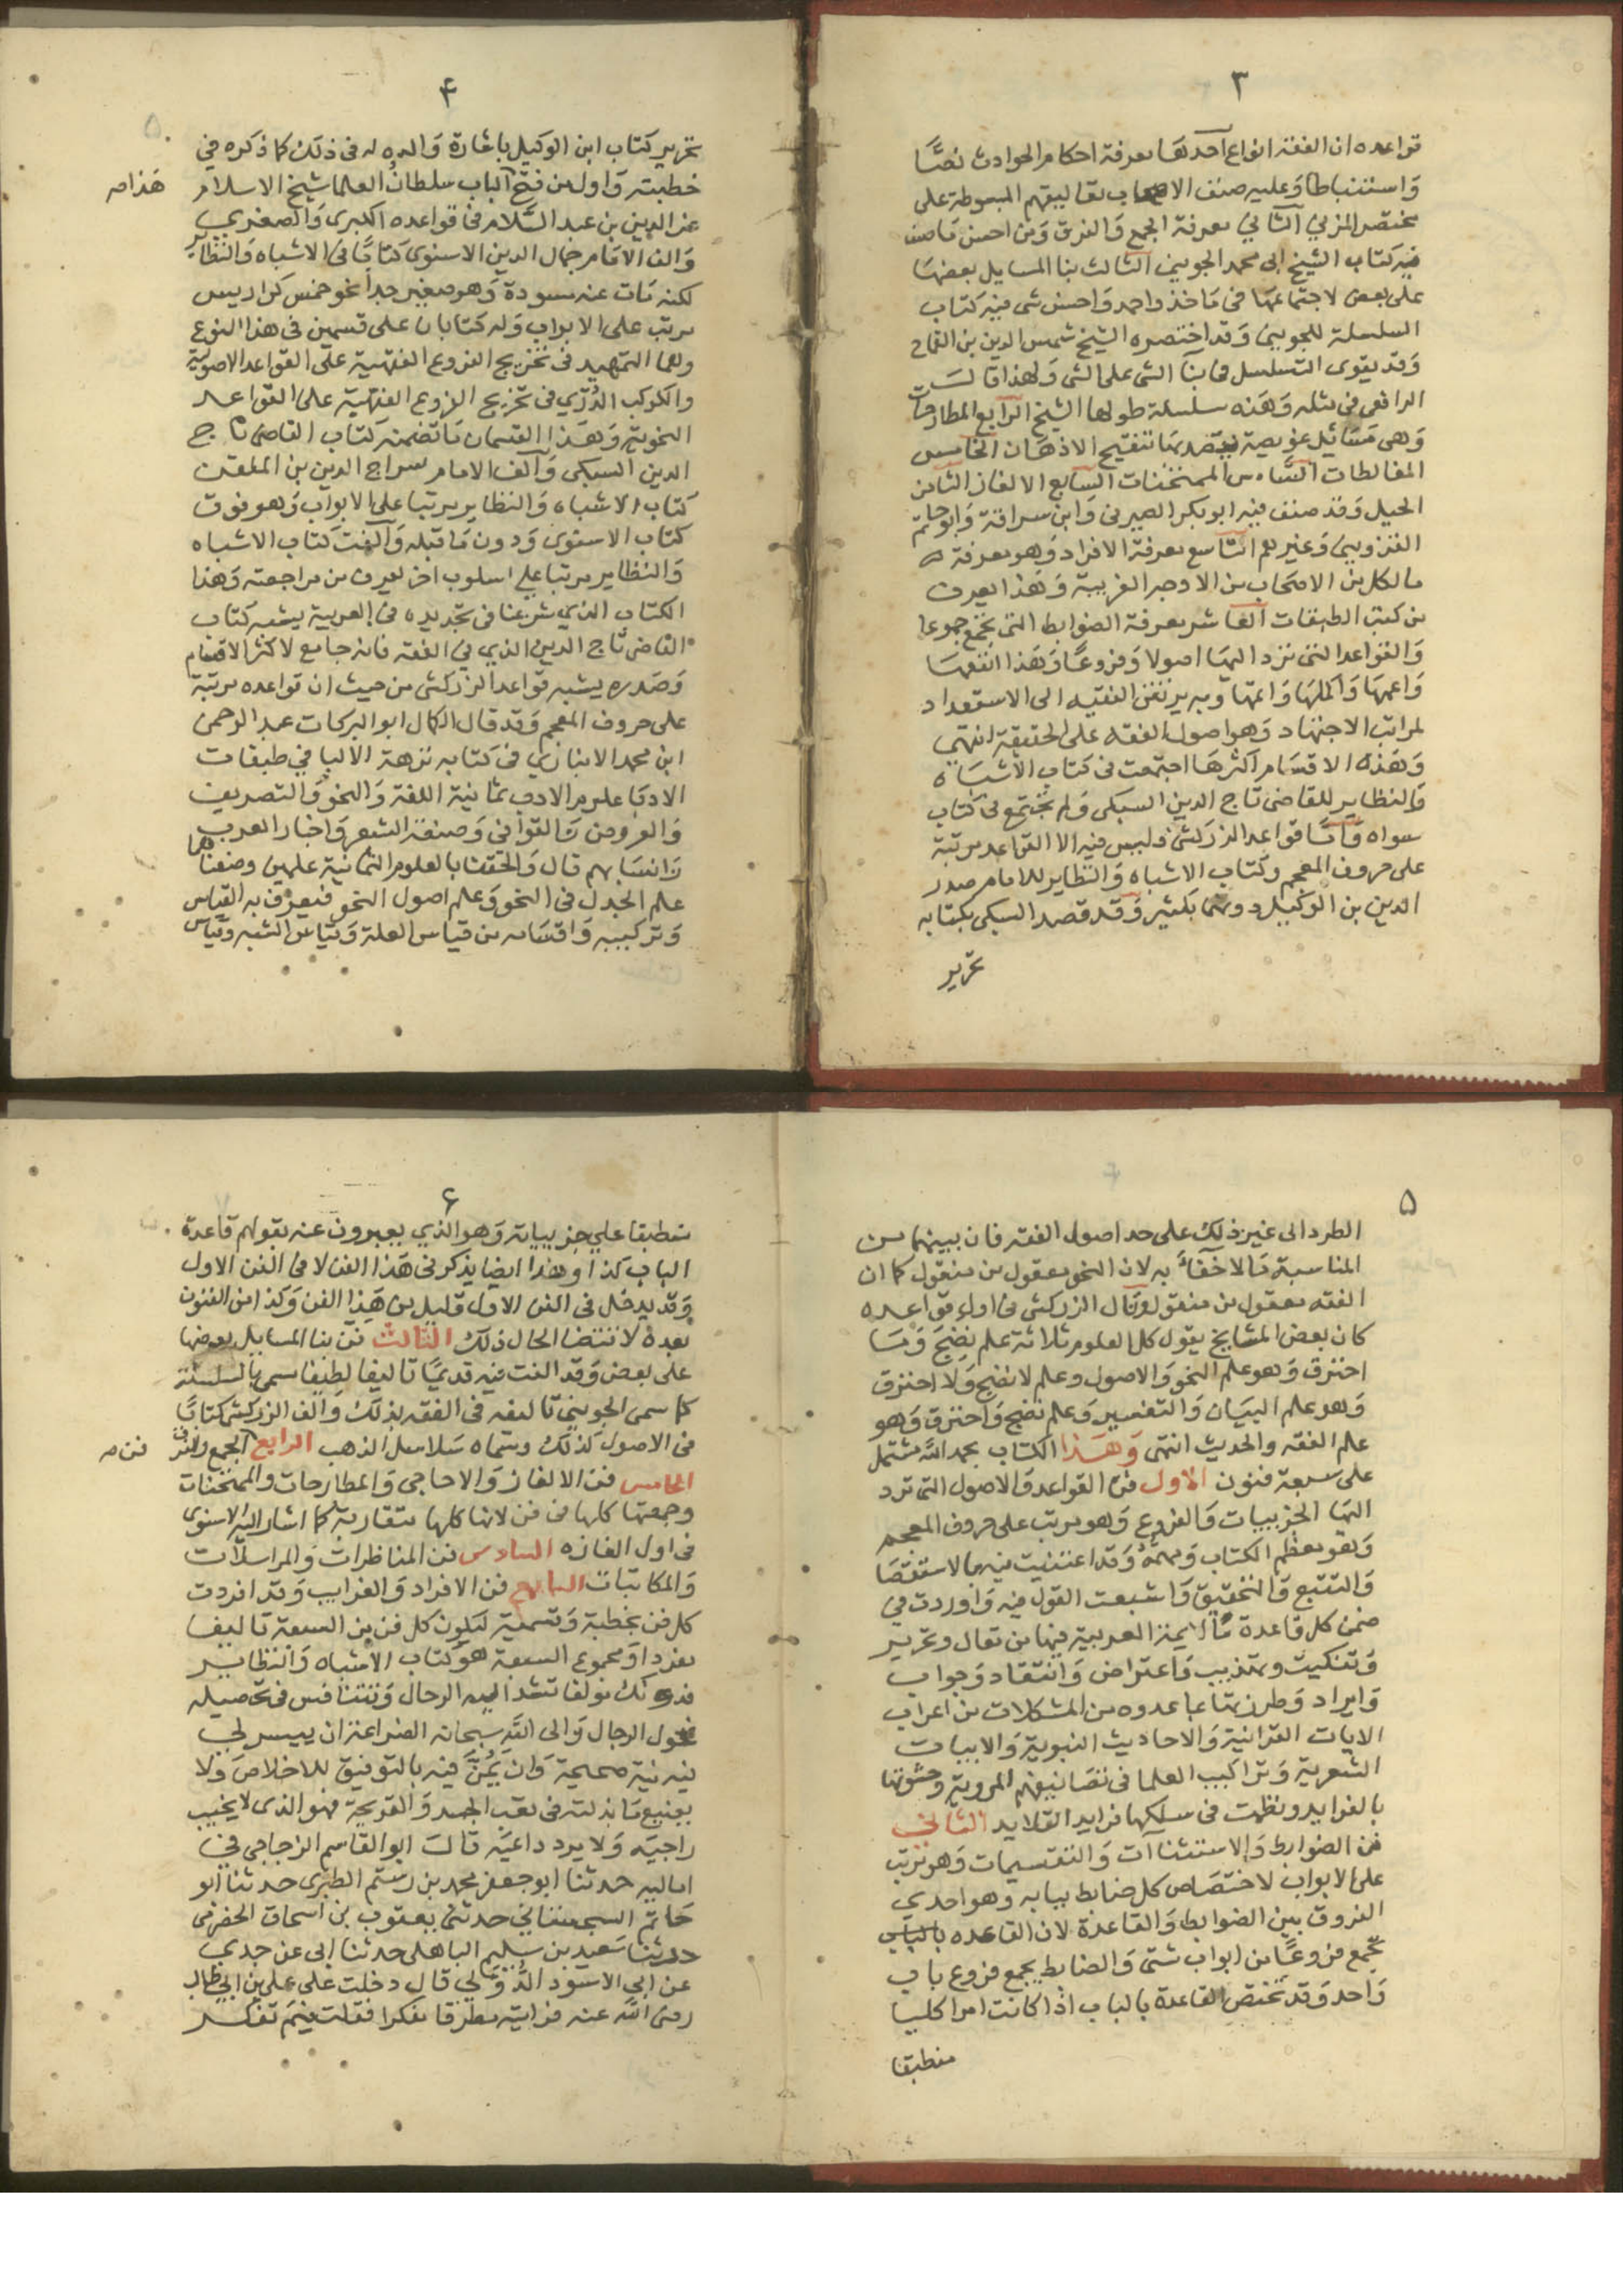 ٣
قواعده ان الفقه انواع احدها معرفة احكام الحوادث نصًّا
وَاستنباطا وَعليه صنف الاصحاب تعاليقهم المبسوطة على
مختصر المزني الثاني معرفة الجمع وَالفرق وَمن احسن مَا صنف
فيه كتاب الشيخ ابى محمد الجويني الثالث بنا المسايل بعضهَا
على بعض لاجتماعهَا في مَاخذ واحد وَاحسن شى فيه كتاب
السلسلة للجويني وَقد اختصره الشيخ شمس الدين بن القماح
وَقد يقوى التسلسل في بنا الشى على الشى وَلهذا قالَ
الرافعى في مثله وَهَذه سلسلة طولها الشيخ الرابع المطارحات
وَهى مسَائل عويصة يقصد بهَا تنقيح الاذهَان الخامس
المغالطات السَّادس الممتحنات السابع الالغاز الثامن
الحيل وَقد صنف فيه ابو بكر الصيرفى وَابن سراقة وَابو حاتم
القزوينى وَغيرهم التاسع معرفة الافراد وَهو معرفة
مالكل من الاصحَاب من الاوجه الغريبة وَهذا يعرف
من كتب الطبقات العاشر معرفة الضوابط التى تجمع جموعا
وَالقواعد التى ترد اليهَا اصولا وَفروعًا وَهَذا انفعهَا
وَاعمهَا وَاكملهَا وَاتمهَا وَبه يرتقى الفقيه الى الاستعداد
لمراتب الاجتهاد وَهو اصول الفقه على الحقيقة انتهي
وَهَذه الاقسَام اكثرهَا اجتمعت فى كتاب الاشبَاه
وَالنظاير للقاضى تاج الدين السبكى وَلم تجتمع في كتاب
سواه وَامَّا قواعد الزركشى فليس فيه الا القواعد مرتبة
على حروف المعجم وكتاب الاشباه وَالنظاير للامام صدر
الدين بن الوكيل دونهما بكثير وَقد قصد السبكى بكتابه
تحرير
۴
تحرير كتاب ابن الوكيل باشارة وَالده له فى ذلك كما ذكره في
خطبته وَاول من فتح الباب سلطان العلما شيخ الاسلام
هَذا صہ
عز الدين بن عبد السَّلام في قواعده الكبرى وَالصغري
وَالف الامَام جمال الدين الاسنوى كتابًا فى الاشباه وَالنظاير
لكنه مَات عنه مسودة وَهو صغير جدا نحو خمس كراريس
مرتب على الابواب وَله كتابان على قسمين فى هذا النوع
وهما التمهيد فى تخريج الفروع الفقهية على القواعد الاصولية
والكوكب الدُرّي فى تخريج الفروع الفقهية على القواعد
النحوية وَهَذا القسمان مَا تضمنه كتاب القاضى تاج
الدين السبكى وَالف الامام سراج الدين بن الملقن
كتاب الاشباه وَالنظاير مرتبا على الابواب وَهو فوق
كتاب الاسنوى وَدون مَا قبله وَالفت كتاب الاشباه
وَالنظاير مرتبا على اسلوب اخر يعرف من مراجعته وَهذا
الكتاب الذي شرعنا فى تجديده فى العربية يشبه كتاب
القاضى تاج الدين الذي في الفقه فانه جامع لاكثر الاقسام
وَصدره يشبه قواعد الزركشى من حيث ان قواعده مرتبة
على حروف المعجم وَقد قال الكمال ابو البركات عبد الرحمن
ابن محمد الانباري فى كتابه نزهة الالبا في طبقات
الادبا علوم الادب ثمانية اللغة وَالنحو وَالتصريف
وَالعروض وَالقوافى وَصنعة الشعر وَاخبار العرب
وَانسَابهم قال وَالحقنا بالعلوم الثمانية علمين وضعناهما
علم الجدل فى النحو وَعلم اصول النحو فيعرف به القياس
وَتركيبه وَاقسَامه من قياس العلة وَقياس الشبه وقياس
٥
الطرد الى غير ذلك على حد اصول الفقه فان بينهما من
المناسبة مَا لا خَفَاءً به لان النحو معقول من منقول كما ان
الفقه معقول من منقول وَقال الزركشى فى اول قواعده
كان بعض المشايخ يقول كل العلوم ثلاثة علم نضِجَ وَمَا
احترق وَهو علم النحو وَالاصول وعلم لا نضج وَلا احترق
وَهو علم البيَان وَالتفسير وَعلم نضج وَاحترق وَهو
علم الفقه والحديث انتهى وَهَذا الكتاب بحمد اللّٰه مشتمل
على سبعة فنون الاول فنّ القواعد وَالاصول التى ترد
اليهَا الجزييات وَالفروع وَهو مرتب على حروف المعجم
وَهو معظم الكتاب وَمهمهُ وَقد اعتنيت فيه بالاستقصَا
وَالتتبع وَالتحقيق وَاشبعت القول فيه وَاوردت في
ضمن كل قاعدة مَا لايمة العربية فيها من مقال وتحرير
وَتنكيت وتهذيب وَاعتراض وَانتقاد وَجواب
وَايراد وَطرزتهَا بما عدوه من المشكلات من اعراب
الايات القرانية وَالاحاديث النبوية وَالابيات
الشعرية وَتراكيب العلما فى تصَانيفهم المروية وَحشوتها
بالفوايد ونظمت فى سلكها فرايد القلايد الثانى
فن الضوابط وَالاستثناآت وَالتقسيمات وَهو مرتب
على الابواب لاختصَاص كل ضابط ببابه وهو احدي
الفروق بين الضوابط وَالقاعدة لان القاعده
تجمع فروعًا من ابواب شتى وَالضابط يجمع فروع باب
وَاحد وَقد تختص القاعدة بالباب اذا كانت امرا كليا
منطبقا
۶
منطبقا علي جزيياته وَهو الذي يعبرون عنه بقولهم قاعدة
الباب كذا وهذا ايضا يذكر فى هَذا الفن لا فى الفن الاول
وَقد يدخل فى الفن الاول قليل من هَذا الفن وَكذا من الفنون
بعده لاقتضا الحال ذلك الثالث فن بنا المسايل بعضها
على بعض وَقد الفت فيه قديمًا تاليفا لطيفا سمى بالسلسلة
كما سمى الجوينى تاليفه فى الفقه بذلك وَالف الزركشى كتابًا
فى الاصول كذلك وسَماه سَلاسل الذهب الرابع الجمع والفرق
فن صہ
الخامس فن الالغاز وَالاحاجى وَالمطارحات والممتحنات
وجمعتها كلها فى فن لانها كلها متقاربة كما اشار اليه الاسنوى
فى اول الغازه السادس فن المناظرات وَالمراسلات
وَالمكاتبات السابع فن الافراد وَالغرايب وَقد افردت
كل فن بخطبة وَتسمية ليكون كل فن من السبعة تاليفا
مفردا وَمجموع السبعة هو كتاب الاشباه وَالنظاير
فدونك مولفا تشد اليه الرحال وَتتنافس فى تحصيله
فحول الرجال وَالى اللّٰه سبحانه الضراعة ان ييسر لي
فيه نية صحيحة وَان يَمُنَّ فيه بالتوفيق للاخلاص وَلا
يضيع مَا بذلته فى تعب الجسد وَالقريحة فهو الذى لا يخيب
راجيَه وَلا يرد داعيَه قالَ ابو القاسم الزجاجى فى
اماليه حدثنا ابو جعفر محمد بن رستم الطبرى حدثنا ابو
حَاتم السجستاني حدثنى يعقوب بن اسحاق الحضرمى
حدثنا سَعيد بن سليم الباهلى حدثنا ابى عن جدي
عن ابي الاسود الدُّؤَلي قال دخلت على علي بن ابي طالب
رضى اللّٰه عنه فرايته مطرقا مفكرا فقلت فيمَ تفكر